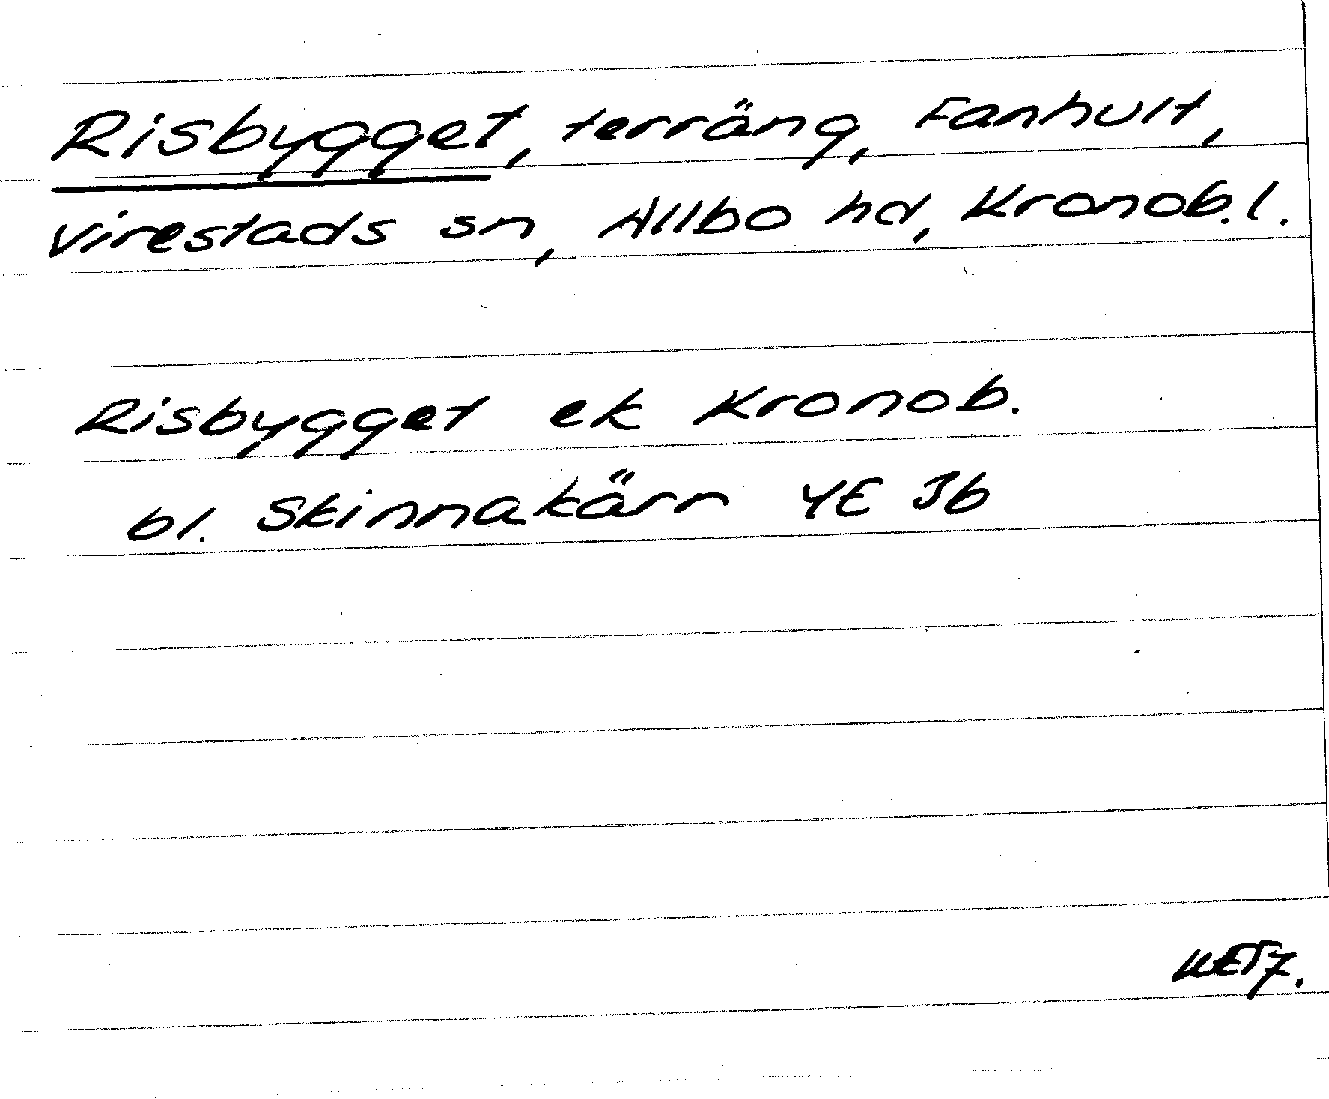 Risbygget, terräng, Fanhult,
Virestads sn, Allbo hd, Kronob.l.
Risbygget ek Kronob.
bl. Skinnakärr 4E 3b